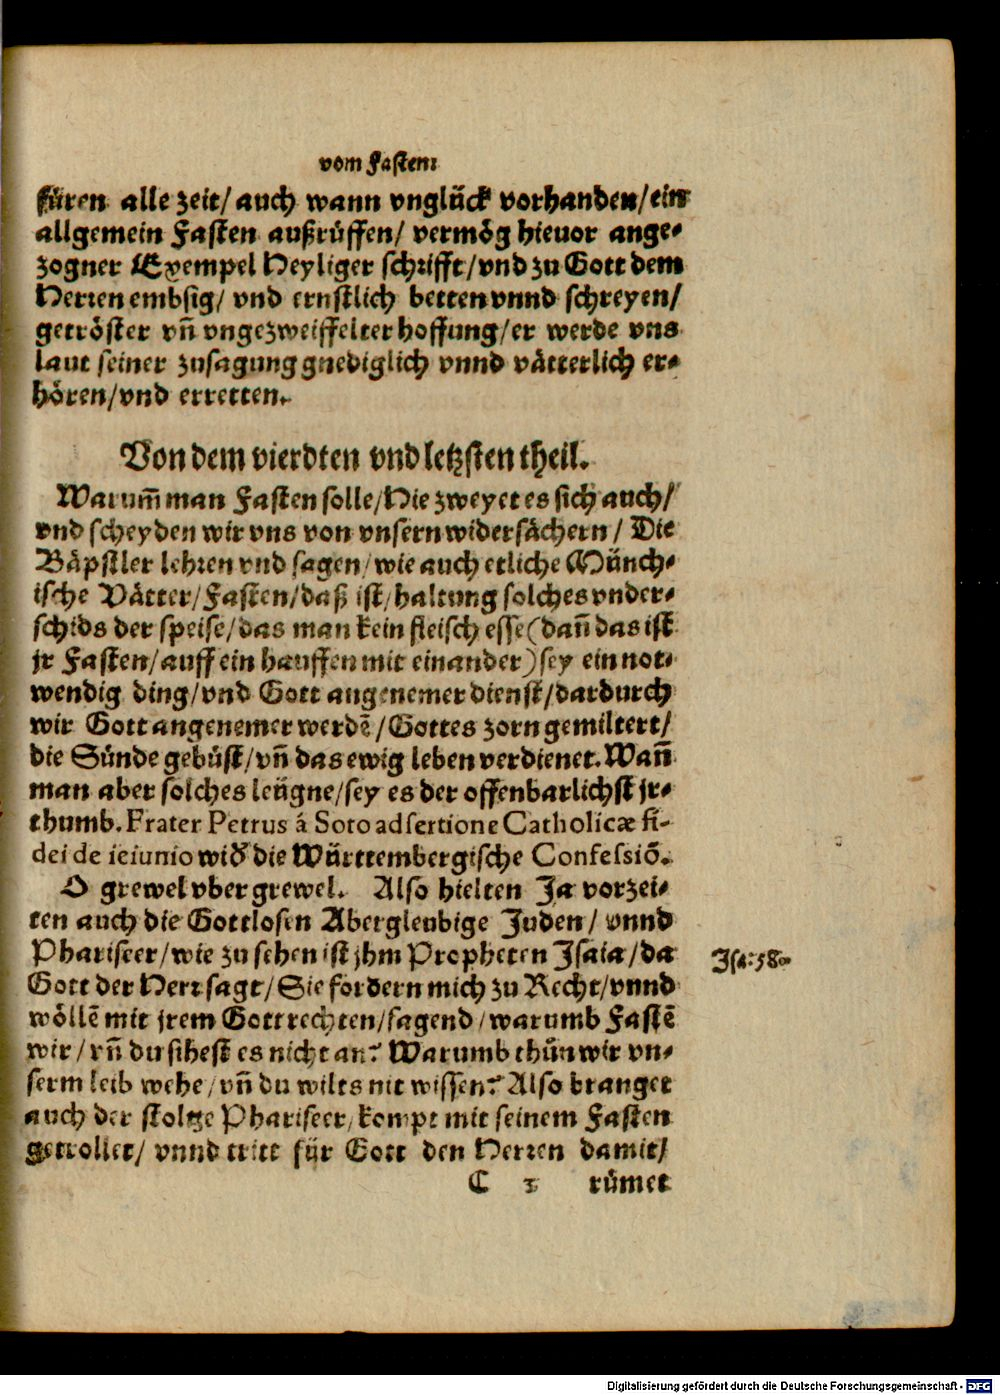 vom Fasten.
füren alle zeit/ auch wann vnglück vorhanden/ein
allgemein Fasten außrüffen/ vermög hieuor ange-
zogner Exempel Heyliger schrifft/vnd zu Gott dem
Herren embsig/ vnd ernstlich betten vnnd schreyen/
getröster vñ vngezweiffelter hoffung/er werde vns
laut seiner zusagung gnediglich vnnd vätterlich er-
hören/vnd erretten.
Von dem vierdten vnd letzsten theil.
Warum̃ man Fasten solle/Hie zweyet es sich auch/
vnd scheyden wir vns von vnsern widersächern/ Die
Bäpstler lehren vnd sagen/wie auch etliche Münch-
ische Vätter/Fasten/daß ist/haltung solches vnder-
schids der speise/das man kein fleisch esse(dañ das ist
jr Fasten/auff ein hauffen mit einander)sey ein not-
wendig ding/vnd Gott angenemer dienst/dardurch
wir Gott angenemer werdẽ/Gottes zorn gemiltert/
die Sünde gebüst/vñ das ewig leben verdienet.Wañ
man aber solches leügne/sey es der offenbarlichst jr-
thumb.Frater Petrus á Soto adsertione Catholicæ fi-
dei de ieiunio wid̕ die Württembergische Confessiõ.
O grewel vber grewel. Also hielten Ja vorzei-
ten auch die Gottlosen Aberglenbige Juden/ vnnd
Phariseer/wie zu sehen ist jhm Propheten Isaia/da
Gott der Herr sagt/Sie fordern mich zu Recht/vnnd
wöllẽ mit jrem Gott rechten/sagend/warumb Fastẽ
wir/vñ du sihest es nicht an? Warumb thůn wir vn-
serm leib wehe/vñ du wilts nit wissen? Also branget
auch der stoltze Phariseer/kompt mit seinem Fasten
getrollet/ vnnd tritt für Gott den Herren damit/
Isa:58.
C 3 růmet
Digitalisierung gefördert durch die Deutsche Forschungsgemeinschaft - DFG